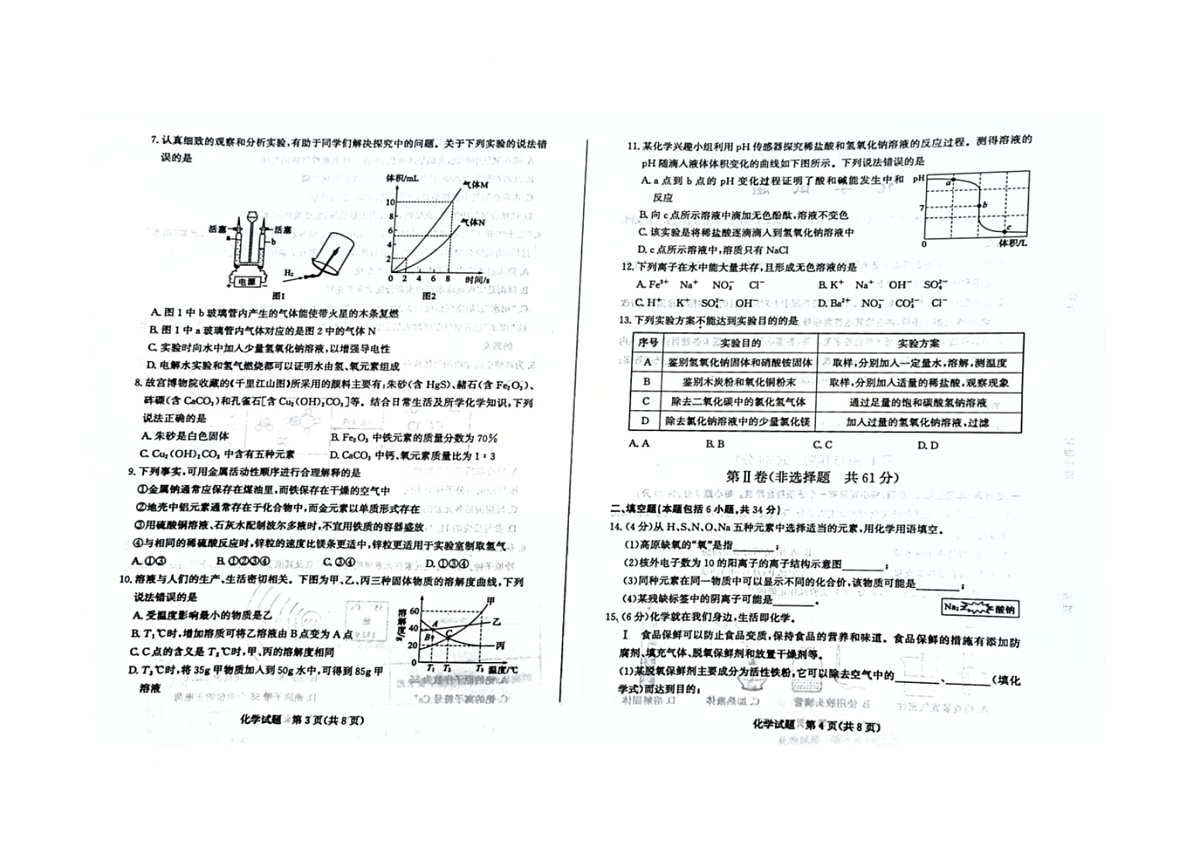 7. 认真细致的观察和分析实验,有助于同学们解决探究中的问题。关于下列实验的说法错
误的是
体积/mL
气体M
气体N
10
8
6
4
2
0 2 4 6 8 时间/s
活塞 活塞
a b
电源
H₂
图1 图2
A. 图1中b玻璃管内产生的气体能使带火星的木条复燃
B. 图1中a玻璃管内气体对应的是图2中的气体N
C. 实验时向水中加入少量氢氧化钠溶液,以增强导电性
D. 电解水实验和氢气燃烧都可以证明水由氢、氧元素组成
8. 故宫博物院收藏的《千里江山图》所采用的颜料主要有:朱砂(含HgS)、赭石(含Fe₂O₃)、
砗磲(含CaCO₃)和孔雀石[含Cu₂(OH)₂CO₃]等。结合日常生活及所学化学知识,下列
说法正确的是
A. 朱砂是白色固体 B. Fe₂O₃中铁元素的质量分数为70%
C. Cu₂(OH)₂CO₃中含有五种元素 D. CaCO₃中钙、氧元素质量比为1:3
9. 下列事实,可用金属活动性顺序进行合理解释的是
①金属钠通常应保存在煤油里,而铁保存在干燥的空气中
②地壳中铝元素通常存在于化合物中,而金元素以单质形式存在
③用硫酸铜溶液、石灰水配制波尔多液时,不宜用铁质的容器盛放
④与相同的稀硫酸反应时,锌粒的速度比镁条更适中,锌粒更适用于实验室制取氢气
A. ①③ B. ①②③④ C. ③④ D. ①③④
10. 溶液与人们的生产、生活密切相关。下图为甲、乙、丙三种固体物质的溶解度曲线,下列
说法错误的是
A. 受温度影响最小的物质是乙
B. T₁℃时,增加溶质可将乙溶液由B点变为A点
C. C点的含义是T₂℃时,甲、丙的溶解度相同
D. T₃℃时,将35g甲物质加入到50g水中,可得到85g甲
溶液
溶解度/g
60
40
20
0
甲
乙
丙
A
B
C
T₁ T₂ T₃ 温度/℃
化学试题 第3页(共8页)
11. 某化学兴趣小组利用pH传感器探究稀盐酸和氢氧化钠溶液的反应过程。测得溶液的
pH随滴入液体体积变化的曲线如下图所示。下列说法错误的是
A. a点到b点的pH变化过程证明了酸和碱能发生中和
反应
B. 向c点所示溶液中滴加无色酚酞,溶液不变色
C. 该实验是将稀盐酸逐滴滴入到氢氧化钠溶液中
D. c点所示溶液中,溶质只有NaCl
pH
7
0
a
b
c
体积/L
12. 下列离子在水中能大量共存,且形成无色溶液的是
A. Fe³⁺ Na⁺ NO₃⁻ Cl⁻ B. K⁺ Na⁺ OH⁻ SO₄²⁻
C. H⁺ K⁺ SO₄²⁻ OH⁻ D. Ba²⁺ NO₃⁻ CO₃²⁻ Cl⁻
13. 下列实验方案不能达到实验目的的是
序号 实验目的 实验方案
A 鉴别氢氧化钠固体和硝酸铵固体 取样,分别加入一定量水,溶解,测温度
B 鉴别木炭粉和氧化铜粉末 取样,分别加入适量的稀盐酸,观察现象
C 除去二氧化碳中的氯化氢气体 通过足量的饱和碳酸氢钠溶液
D 除去氯化钠溶液中的少量氯化镁 加入过量的氢氧化钠溶液,过滤
A. A B. B C. C D. D
第Ⅱ卷(非选择题 共61分)
二、填空题(本题包括6小题,共34分)
14. (4分)从H、S、N、O、Na五种元素中选择适当的元素,用化学用语填空。
(1)高原缺氧的“氧”是指________;
(2)核外电子数为10的阳离子的离子结构示意图________;
(3)同种元素在同一物质中可以显示不同的化合价,该物质可能是________;
(4)某残缺标签中的阴离子可能是________。
Na₂ 酸钠
15. (6分)化学就在我们身边,生活即化学。
Ⅰ 食品保鲜可以防止食品变质,保持食品的营养和味道。食品保鲜的措施有添加防
腐剂、填充气体、脱氧保鲜剂和放置干燥剂等。
(1)某脱氧保鲜剂主要成分为活性铁粉,它可以除去空气中的________、________(填化
学式)而达到目的;
化学试题 第4页(共8页)